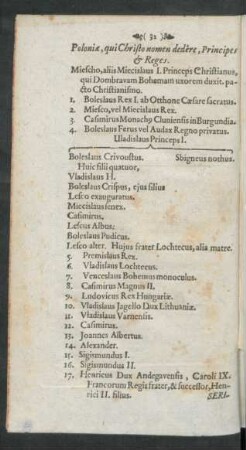 ( 32 )
Poloniæ, qui Christo nomen dedêre, Principes
& Reges.
Miescho, aliis Miecislaus I. Princeps Christianus,
qui Dombravam Bohemam uxorem duxit. pa-
cto Christianismo.
1. Boleslaus Rex I. ab Otthone Cæsare sacratus.
2. Miesco, vel Miecislaus Rex.
3. Casimirus Monacho Cluniensi in Burgundia.
4. Boleslaus Ferus vel Audax Regno privatus.
Uladislaus Princeps I.
Boleslaus Crivoustus. Sbigneus nothus.
Huic filii quatuor,
Vladislaus II.
Boleslaus Crispus, ejus filius
Lesco exauguratus.
Miecislaus senex.
Casimirus,
Lescus Albus.
Boleslaus Pudicus.
Lesco alter. Hujus frater Lochtecus, alia matre.
5. Premislaus Rex.
6. Vladislaus Lochtecus.
7. Venceslaus Bohemus monoculus.
8. Casimirus Magnus II.
9. Ludovicus Rex Hungariæ.
10. Vladislaus Jagello Dux Lithuaniæ.
11. Vladislaus Varnensis.
12. Casimirus.
13. Joannes Albertus.
14. Alexander.
15. Sigismundus I.
16. Sigismundus II.
17. Henricus Dux Andegavensis, Caroli IX.
Francorum Regis frater, & successor, Hen-
rici II. filius.
SERI-